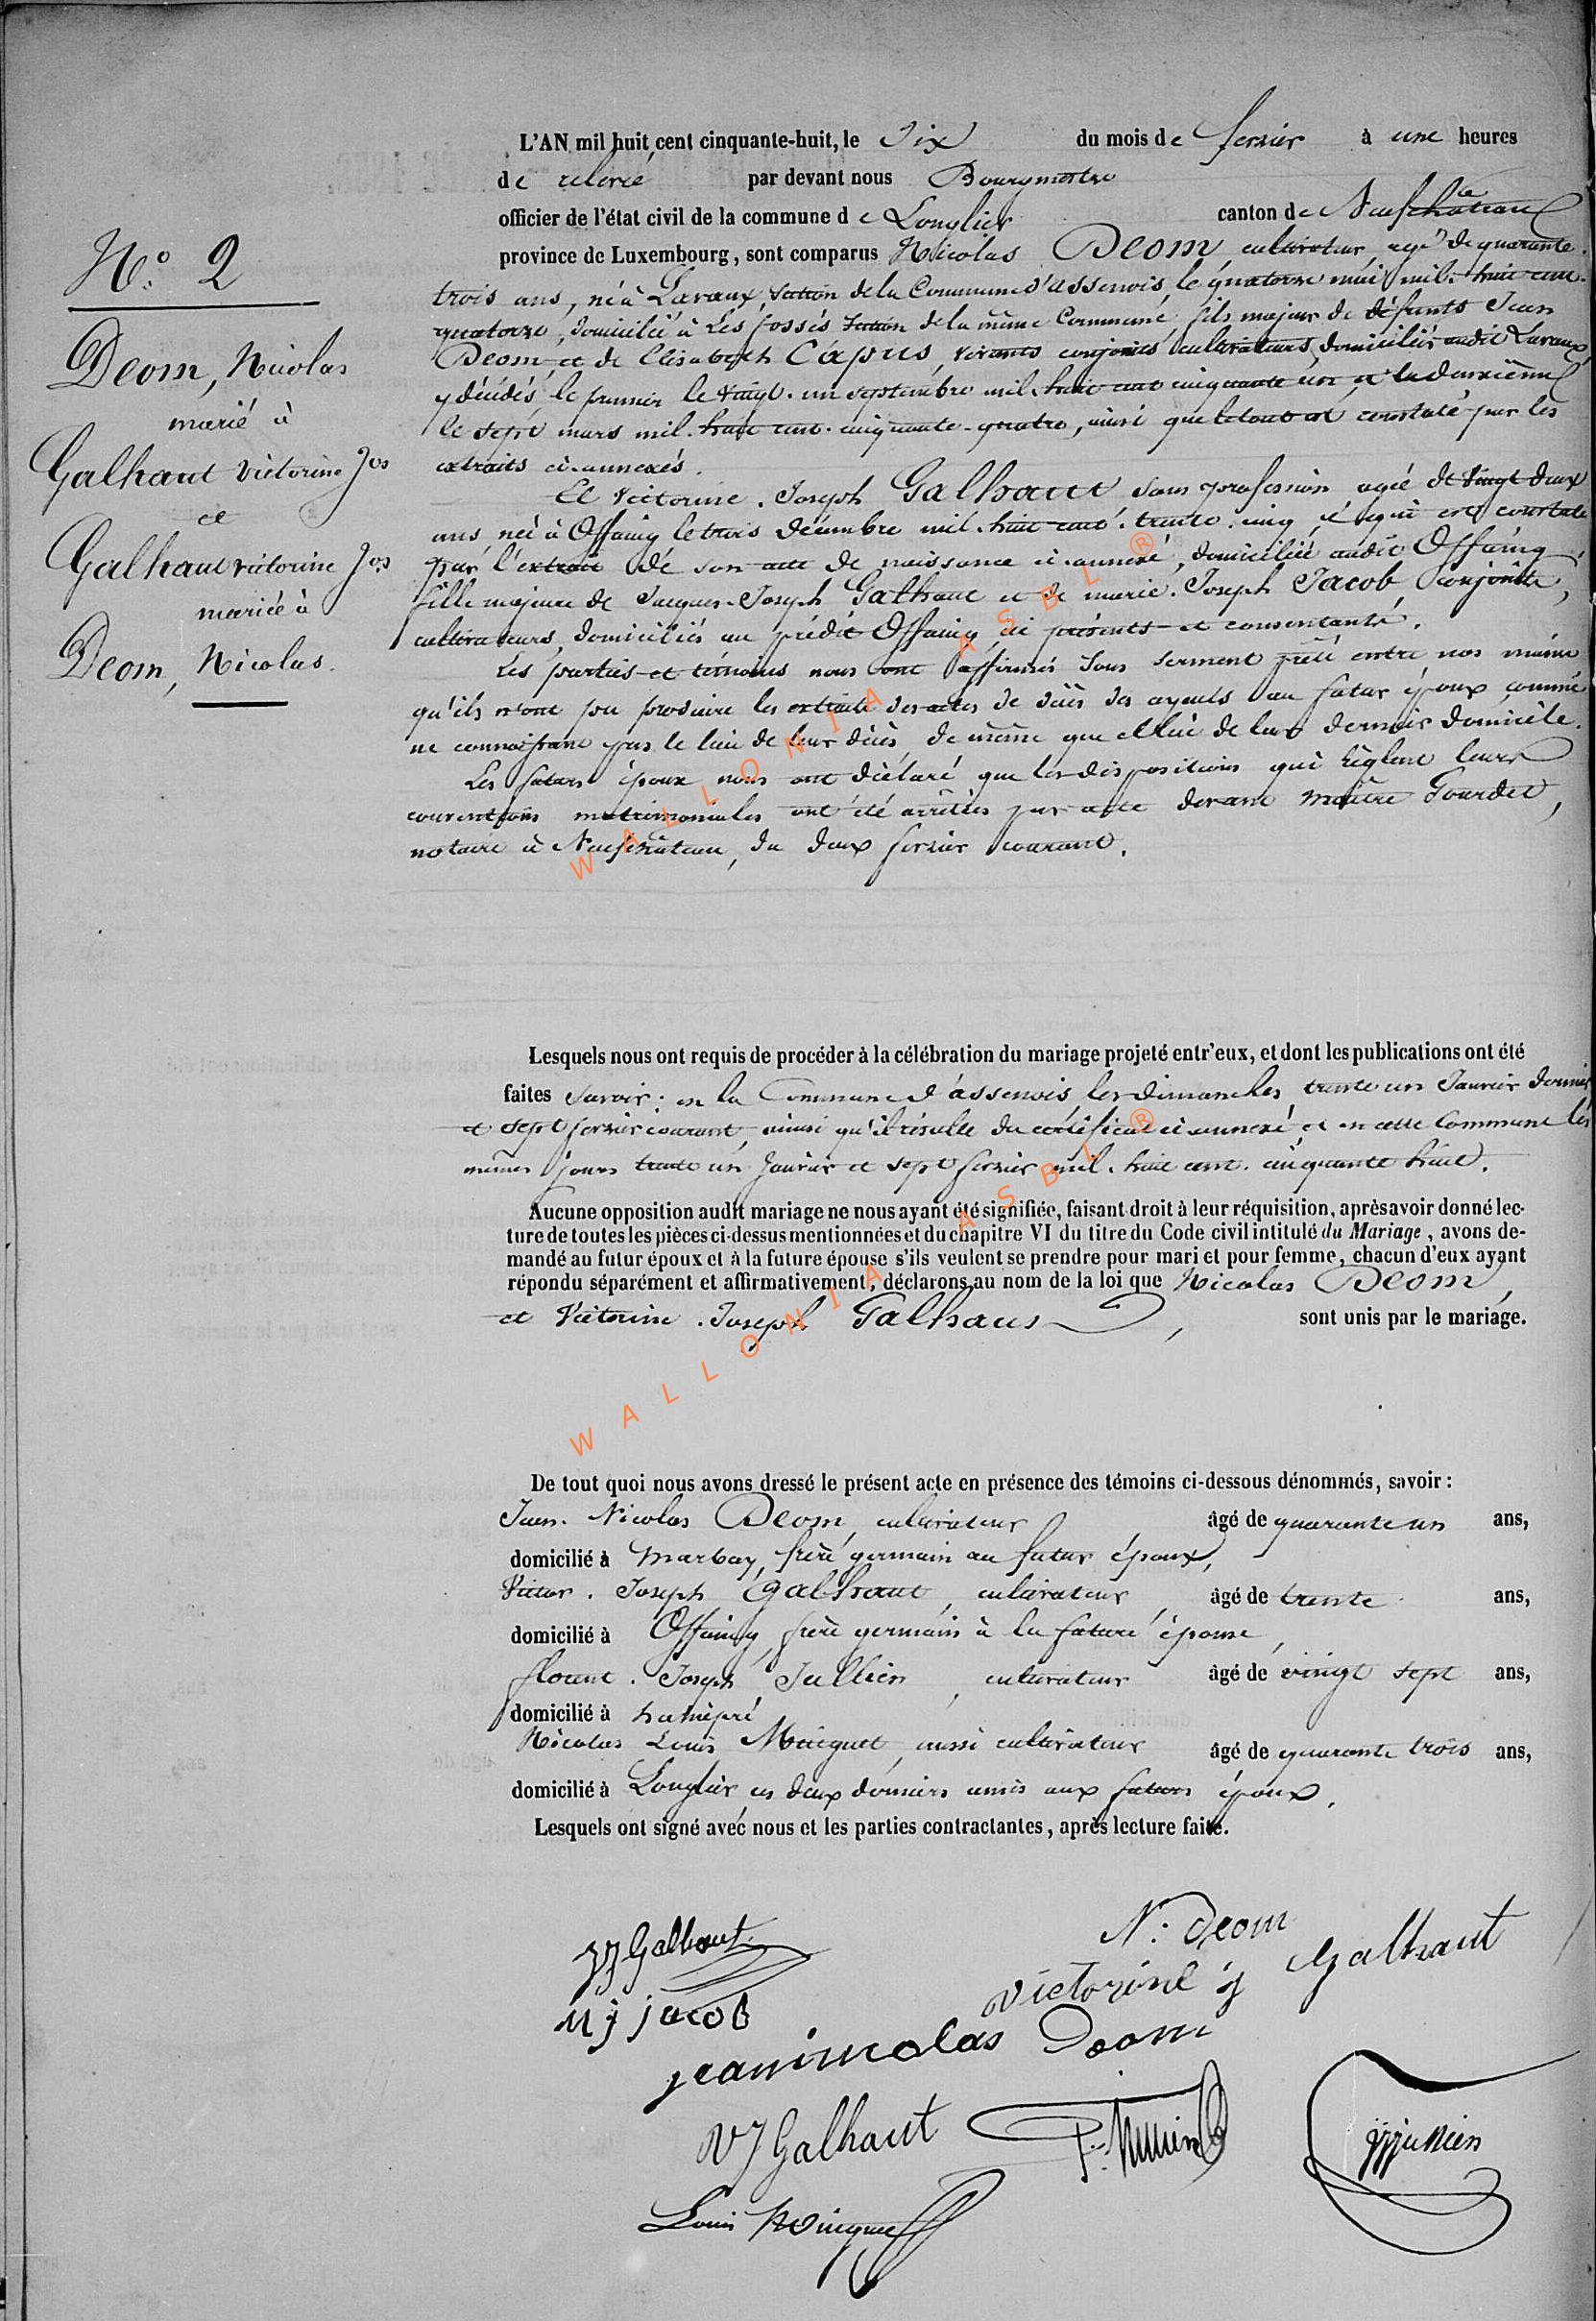 L'AN mil huit cent cinquante-huit, le dix du mois de fevrier à une heures
de relevée par devant nous Bourgmestre
officier de l'état civil de la commune de Longlier canton de Neufchateau
province de Luxembourg, sont comparus Nicolas Deom, cultivateur, agé de quarante
trois ans, né à Lavaux, section de la Commune d'assenois, le quatorze mai mil-huit cent
quatorze, domicilié à Les fossés section de la même Commune, fils majeur de défunts Jean
Deom, et de Elisabeth Capus, vivants conjoints cultivateurs, domiciliés audit Lavaux,
y décédés le premier le vingt-un septembre mil-huit cent cinquante un, et la deuxième
le sept mars mil-huit cent-cinquante-quatre, ainsi que le tout est constaté par les
extraits ci-annexés.
Et Victorine-Joseph Galhaut, sans profession, agée de vingt deux
ans née à Offaing le trois Décembre mil-huit-cent-trente-cinq, ce qui est constaté
par l'extrait de son acte de naissance ci-annexé, domiciliée audit Offaing,
fille majeure de Jacques-Joseph Galhaut et de marie-Joseph Jacob, conjoints,
cultivateurs, domiciliés au prédit Offaing, ici présents et consentants.
Les parties et témoins nous ont affirmés sous serment prêté entre nos mains
qu'ils n'ont pu produire les extraits des actes de décès des ayeuls au futur époux, comme
ne connaissant pas le lieu de leur décès, de même que celui de leur dernier domicile.
Les futurs époux nous ont déclaré que les dispositions qui règlent leurs
conventions matrimoniales ont été arrêtées par acte devant maître Gourdet,
notaire à Neufchâteau, du deux fevrier courant.
N.° 2
Deom, Nicolas
marié à
Galhaut victorine Jos
et
Galhaut victorine Jos
mariée à
Deom, Nicolas.
Lesquels nous ont requis de procéder à la célébration du mariage projeté entr'eux, et dont les publications ont été
faites savoir: en la Commune d'assenois les dimanches trente un Janvier dernier
et sept fevrier courant, ainsi qu'il résulte du certificat ci-annexé, et en cette Commune les
mêmes jours trente un Janvier et sept fevrier mil-huit cent-cinquante huit.
Aucune opposition audit mariage ne nous ayant été signifiée, faisant droit à leur réquisition, après savoir donné lec-
ture de toutes les pièces ci-dessus mentionnées et du chapitre VI du titre du Code civil intitulé du Mariage, avons de-
mandé au futur époux et à la future épouse s'ils veulent se prendre pour mari et pour femme, chacun d'eux ayant
répondu séparément et affirmativement, déclarons au nom de la loi que Nicolas Deom,
et Victorine-Joseph Galhaut, sont unis par le mariage.
De tout quoi nous avons dressé le présent acte en présence des témoins ci-dessous dénommés, savoir:
Jean-Nicolas Deom, cultivateur, âgé de quarante un ans,
domicilié à Marbay, frère germain au futur époux,
Victor-Joseph Galhaut, cultivateur, âgé de trente ans,
domicilié à Offaing, frère germain à la future épouse,
Joseph Jullien, cultivateur âgé de vingt sept ans,
domicilié à hamipré
Nicolas Louis Maiguet, aussi cultivateur âgé de quarante trois ans,
domicilié à Longlier, ces deux derniers amis aux futurs époux.
Lesquels ont signé avec nous et les parties contractantes, après lecture faite.
JJ Galhaut
N: Deom
victorine j Galhaut
M j jacob
jeannicolas Deom
VJ Galhaut
Louis
WALLONIA ASBL ®
WALLONIA ASBL ®